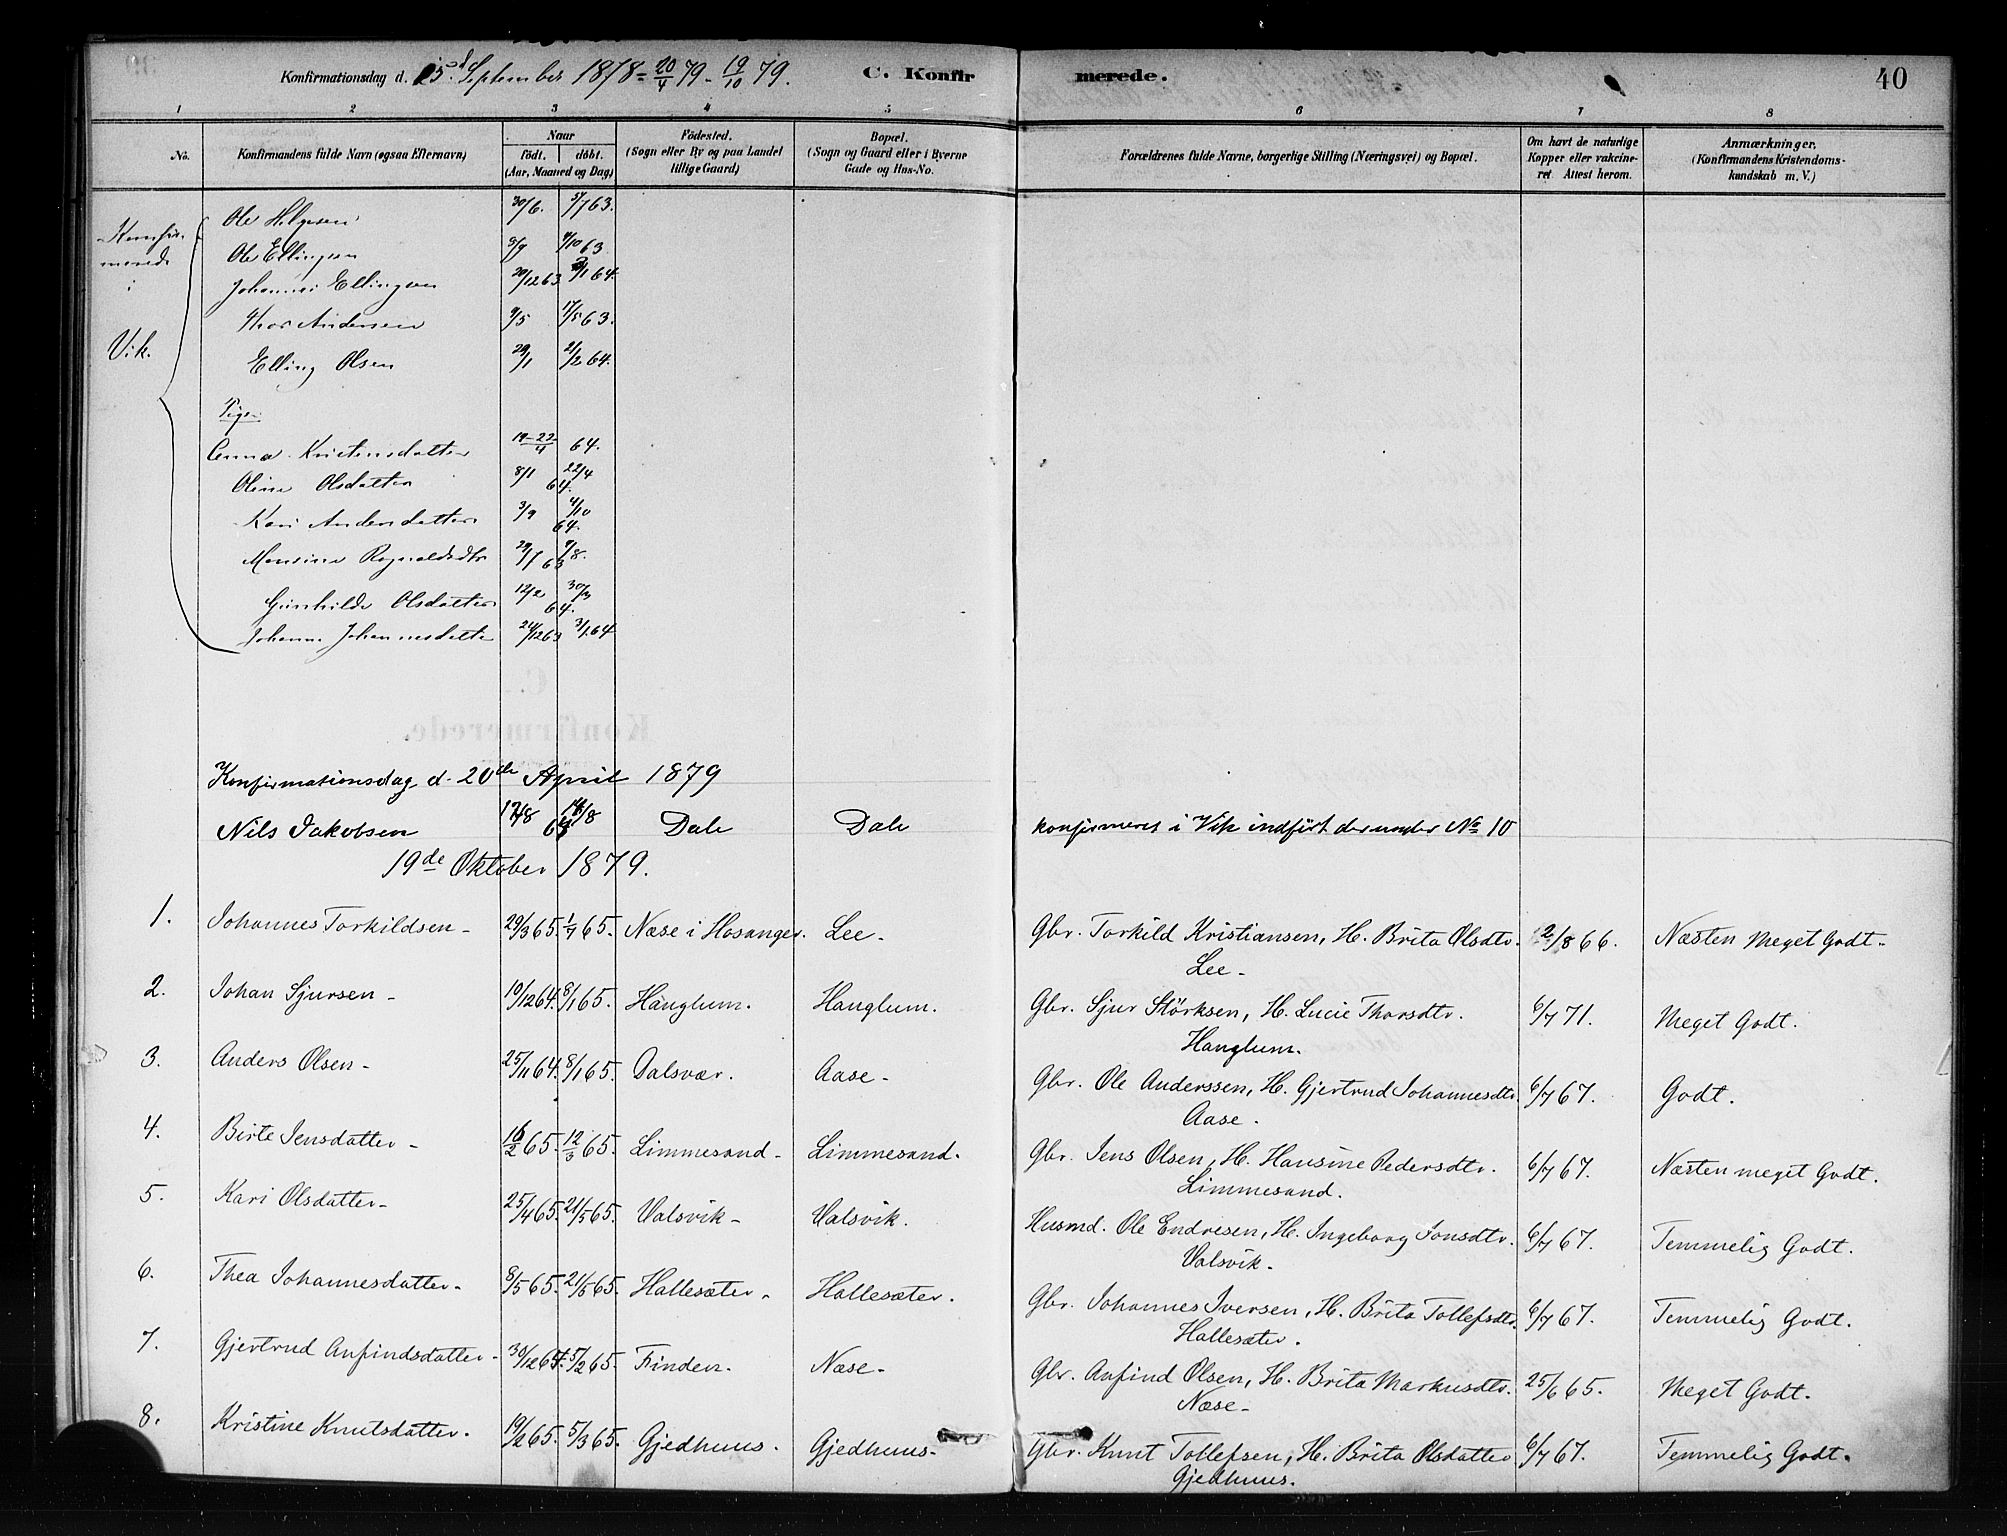 Konfirmationsdag d. 15d September 1878 = 20/4 79 - 19/10 79. C. Konfirmerede. 40
1 2 3 4 5 6 7 8
No. Konfirmandens fulde Navn (ogsaa Efternavn) Naar födt. döbt. (Aar, Maaned og Dag) Födested. (Sogn eller By og paa Landet tillige Gaard) Bopæl. (Sogn og Gaard eller i Byerne Gade og Hus-No. Forældrenes fulde Navne, borgerlige Stilling (Næringsvei) og Bopæl. Om havt de naturlige Kopper eller vakcineret. Attest herom. Anmærkninger, (Konfirmandens Kristendomskundskab m. V.)
Konfirmerede i Vik.
Ole Helgesen 30/6. 5/7 63.
Ole Ellingsen 3/9 4/10 63
Johannes Ellingsen 20/12 63 /1 64.
Thor Andersen 9/5 17/5 63.
Elling Olsen 29/1 21/2 64.
Piger
Anna Kristensdatter 19-22/4 64.
Oline Olsdatter 8/1 22/4 64.
Kari Andersdatter 3/9 4/10 64.
Monsine Ragnaldsdtr 29/7 9/8. 63
Gunhilde Olsdatter 12/2 30/3 64.
Johanne Johannesdatter 24/12 63 3/1 64
Konfirmationsdag d. 20de April 1879
Nils Jakobsen Dale Dale konfirmeret i Vik indført der under No 10
19de Oktober 1879.
1. Johannes Torkildsen - 29/3 65. 1/7 65. Næse i Hosanger. Lee - Gbr. Torkild Kristiansen, H. Brita Olsdtr. 2/8 66. Næsten Meget Godt -
Lee -
2. Johan Sjursen - 10/12 64. 8/1 65. Hanglum. Hanglum. Gbr. Sjur Störksen, H. Lucie Thorsdtr. 6/7 71. Meget Godt.
Hanglum.
3. Anders Olsen - 25/11 64. 8/1 65. Dalsvær. Aase - Gbr. Ole Anderssen, H. Gjertrud Johannesdtr. 6/7 67. Godt.
Aase.
4. Birte Jensdatter - 16/2 65. 12/3 65. Limmesand - Limmesand. Gbr. Jens Olsen, H. Hansine Pedersdtr. 6/7 67. Næsten meget Godt.
Limmesand.
5. Kari Olsdatter - 25/4 65. 21/5 65. Valsvik - Valsvik. Husmd. Ole Endresen, H. Ingeborg Jonsdtr. 6/7 67. Temmelig Godt.
Valsvik.
6. Thea Johannesdatter - 8/5 65. 21/5 65. Hallesæter - Hallesæter. Gbr. Johannes Iversen, H. Brita Tollefsdtr. 6/7 67. Temmelig Godt.
Hallesæter.
7. Gjertrud Anfindsdatter - 30/12 64. 5/2 65. Finden. Næse - Gbr. Anfind Olsen, H. Brita Markusdtr. 25/6 65. Meget Godt.
Næse -
8. Kristine Knutsdatter. 19/2 65. 5/3 65. Gjedhuus. Gjedhuus - Gbr. Knut Tollefsen, H. Brita Olsdatter 6/7 67. Temmelig Godt.
Gjedhuus.